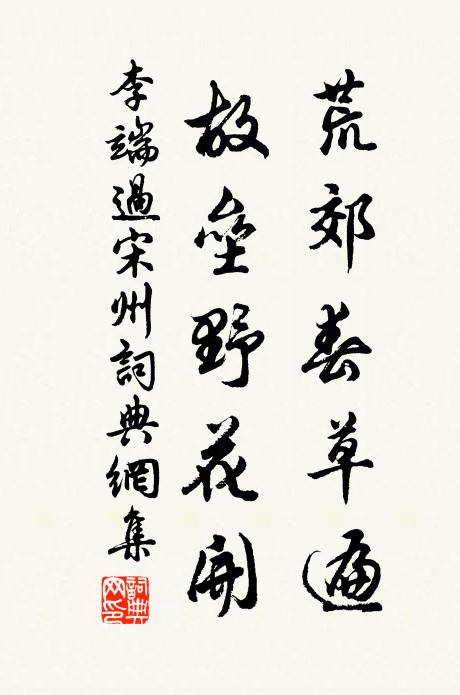 荒郊春草遍
故壘野花開
李端過宋州詞典網集
詞典网印